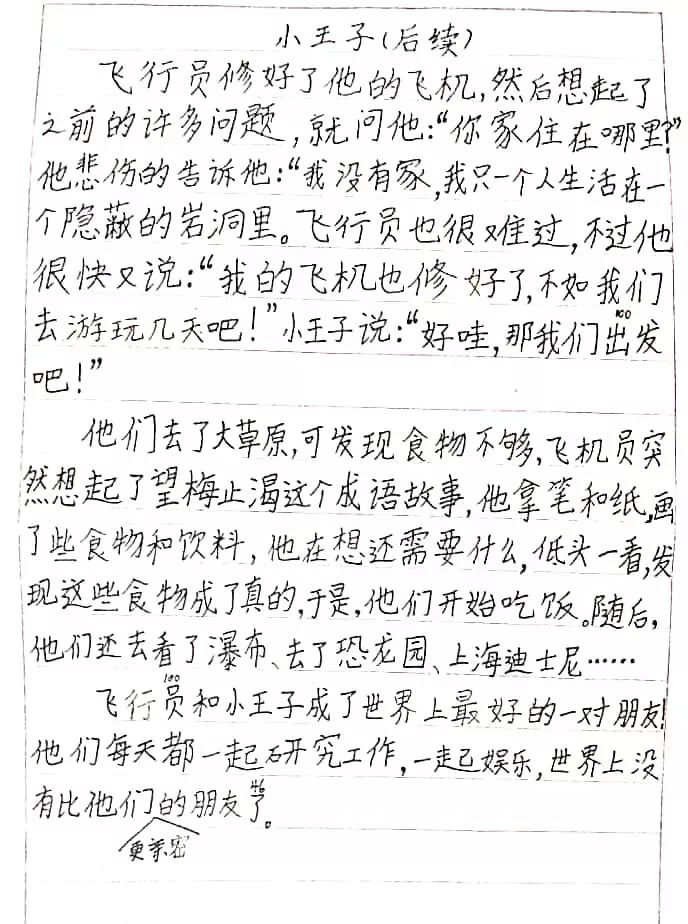 小王子(后续)
飞行员修好了他的飞机,然后想起了
之前的许多问题,就问他:“你家住在哪里?”
他悲伤的告诉他:“我没有家,我只一个人生活在一
个隐蔽的岩洞里。飞行员也很难过,不过他
很快又说:“我的飞机也修好了,不如我们
去游玩几天吧!”小王子说:“好哇,那我们出发
100
吧!”
他们去了大草原,可发现食物不够,飞机员突
然想起了望梅止渴这个成语故事,他拿笔和纸,画
了些食物和饮料,他在想还需要什么,低头一看,发
现这些食物成了真的,于是,他们开始吃饭。随后,
他们还去看了瀑布、去了恐龙园、上海迪士尼……
100
飞行员和小王子成了世界上最好的一对朋友!
他们每天都一起研究工作,一起娱乐,世界上没
有比他们的朋友了。
更亲密